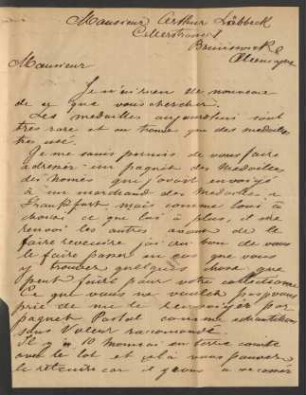 Monsieur Arthur Löbbeck
Cellerstrasse 1
Brunswick
Allemagne
Monsieur
Je n'ai rien de nouveau
de ce que vous cherchez.
Les medailles aujourdhui sont
tres rare et on trouve que des medailles
tres use.
Je me suis permis de vous faire
adresser un paquet des Medailles
des Nomes que j'avais envoyé
à un marchand des Medailles a
Frankfort, mais comme lui à
choisi ce que lui à plus, et de
renvoi les autres avant de le
faire revenire j'ai cru bon de vous
le faire passer en cas que vous
y trouver quelques chose que
peut faire pour votre collection
Ce que vous ne voulez pas vous
prie de me le renvoyer par
paquet Postal comme echantillon
sans Valeur recomandé.
Il y a 10 Monnai en terre
avec le lot et si vous pouvez
le car il y